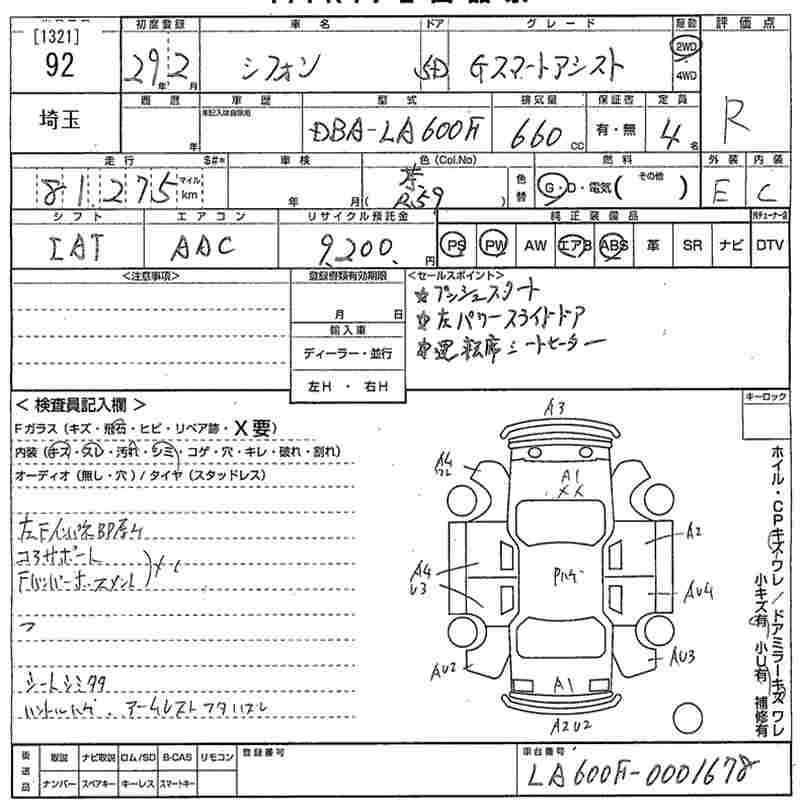 [1321]
92
初度登録 車名 ドア グレード 駆動 評価点
29年 2月 シフォン 5D Gスマートアシスト 2WD・4WD R
埼玉
車歴 型式 排気量 保証書 定員
年 未記入は自家用 DBA-LA600F 660cc 有・無 4名
走行 S#* 車検 色(Col.No) 燃料 外装 内装
81,275 マイル km 年 月 茶 R59 色替 G・D・電気( その他 ) E C
シフト エアコン リサイクル預託金 純正装備品
IAT AAC 9,200円 PS PW AW エアB ABS 革 SR ナビ DTV
<注意事項> 登録書類有効期限 <セールスポイント>
月 日
輸入車
ディーラー・並行
左H・右H
☆プッシュスタート
☆左パワースライドドア
☆運転席シートヒーター
<検査員記入欄> キーロック
Fガラス(キズ・飛石・ヒビ・リペア跡・X要)
内装(キズ・スレ・汚れ・シミ・コゲ・穴・キレ・破れ・割れ)
オーディオ(無し・穴)/タイヤ(スタッドレス)
コアサポート
シートシミタタ
ハンドルハゲ、アームレストフタハズレ
A3
A4
A1
A2
A4
U3
Pハゲ
AU4
AU2
AU3
A1
A2U2
ホイル・CPキズワレ/ドアミラーキズワレ
小キズ有 小U有 補修有
後送品 取説 ナビ取説 ロム/SD B-CAS リモコン 登録番号 車台番号
ナンバー スペアキー キーレス スマートキー LA600F-0001678